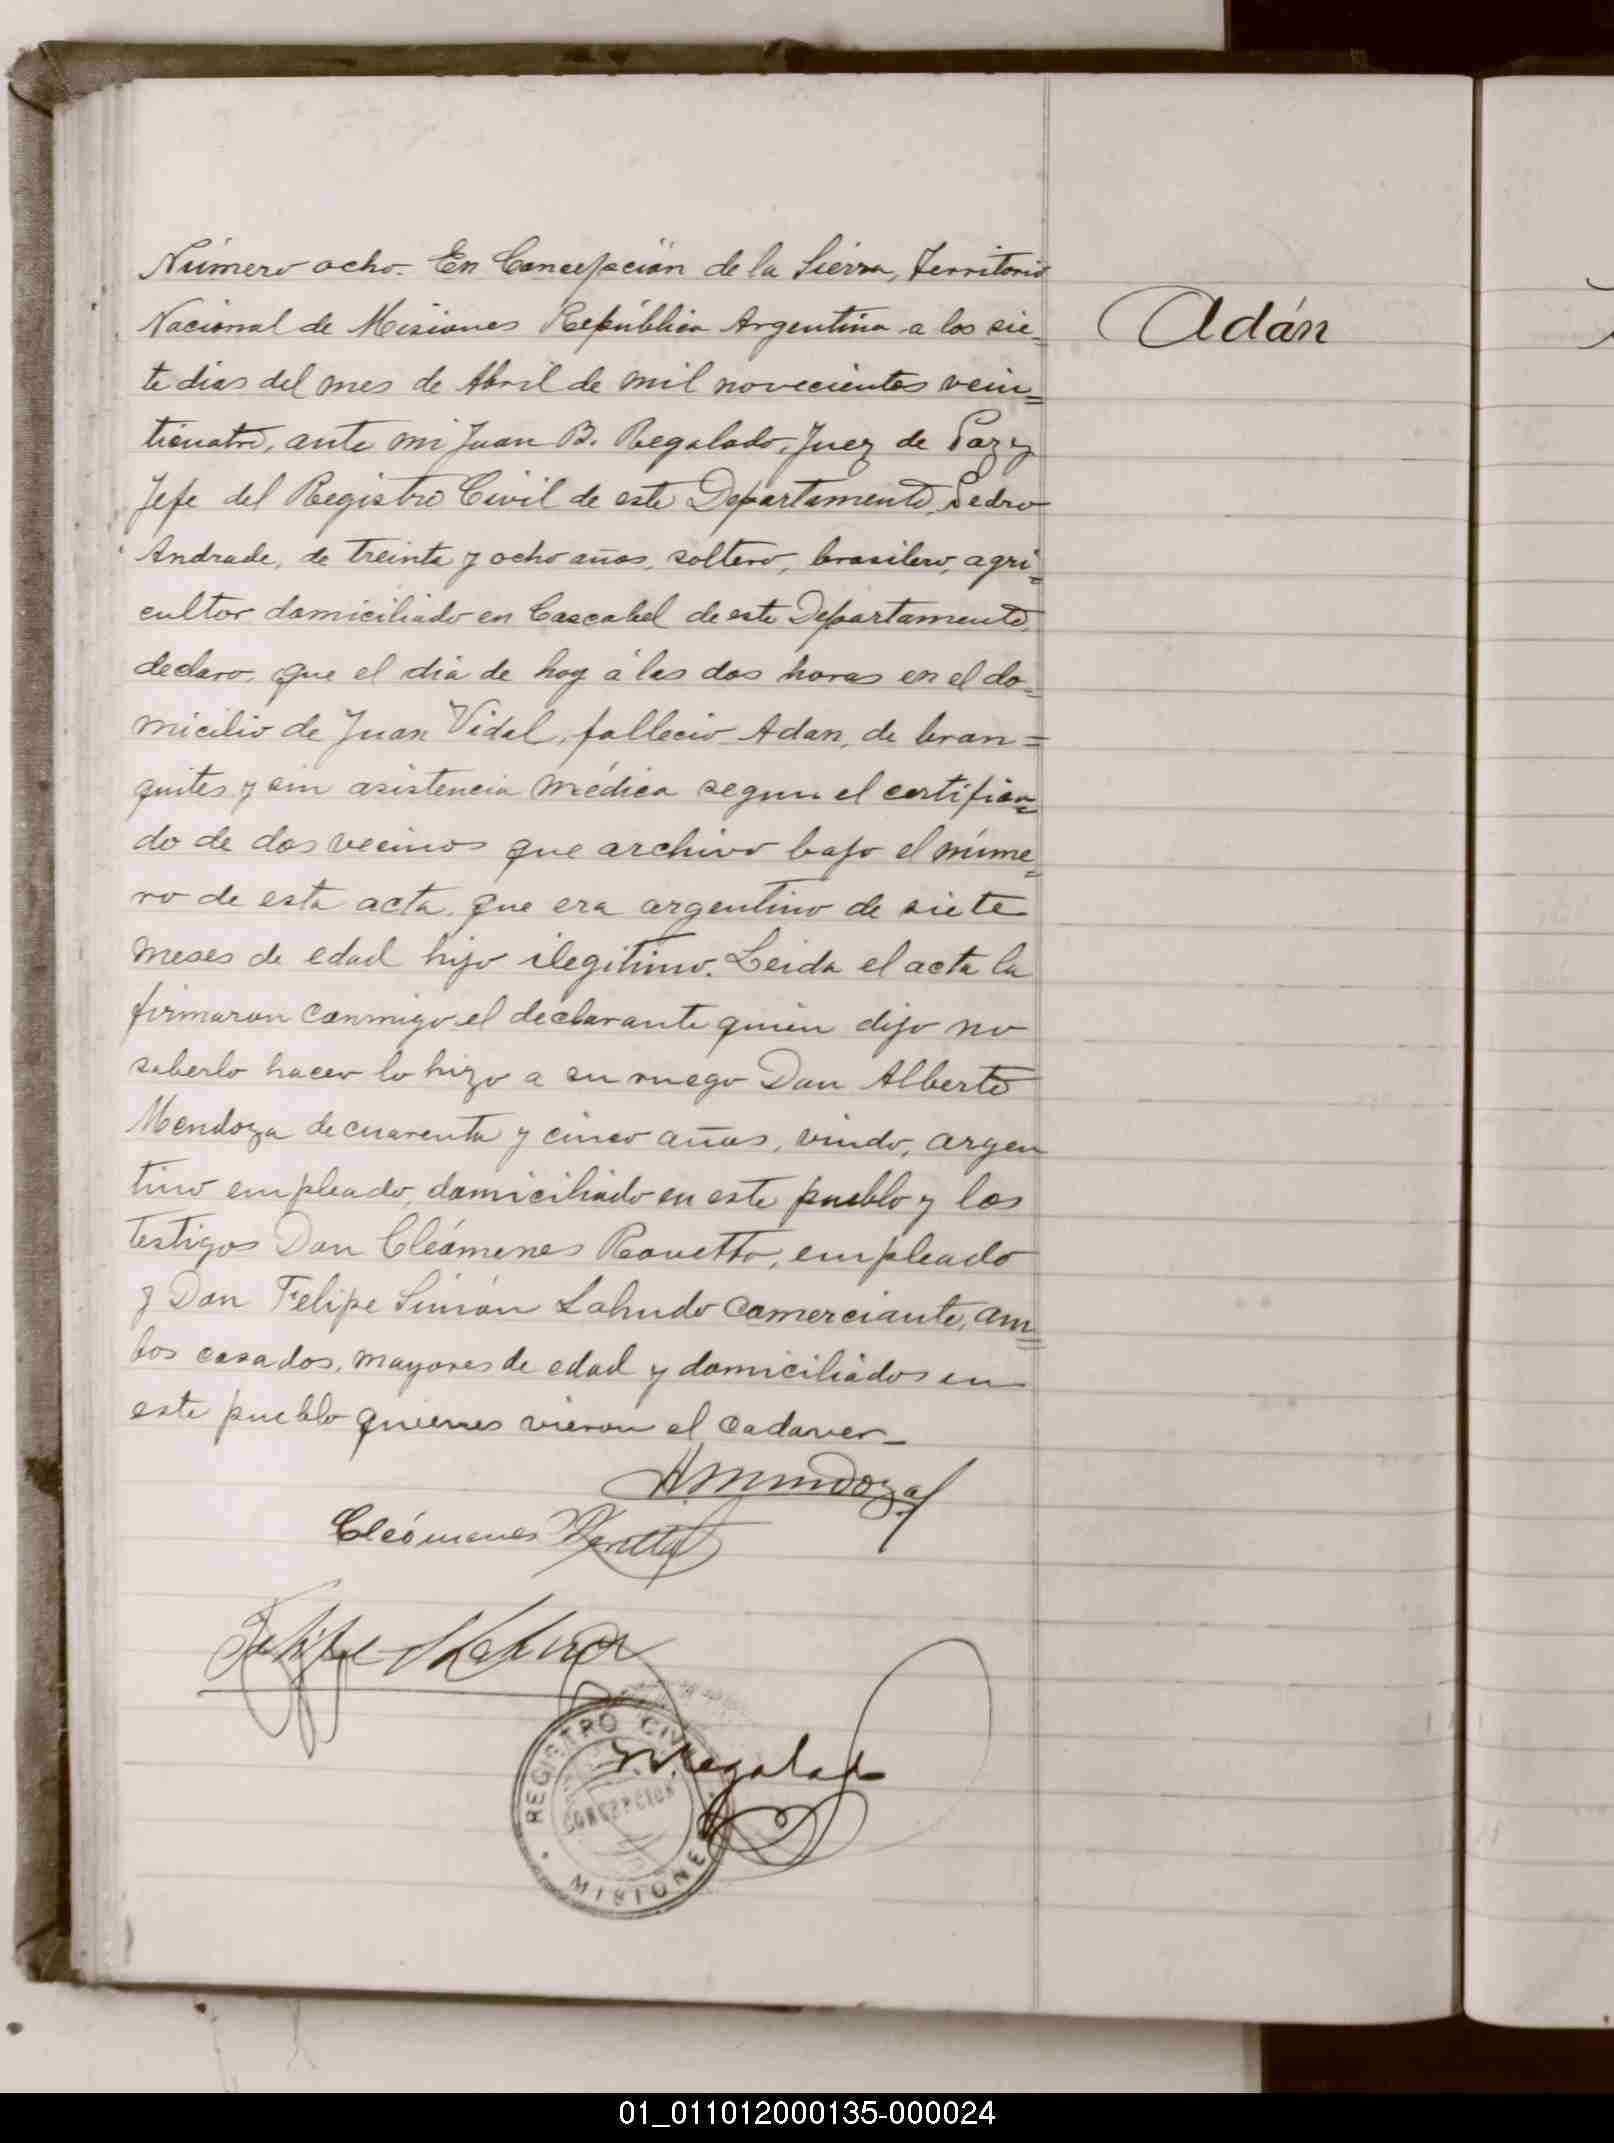 Número ocho. En Concepción de la Sierra, Territorio
Nacional de Misiones República Argentina a los sie=
te dias del mes de Abril de mil novecientos vein=
ticuatro, ante mi Juan B. Regalado, Juez de Paz y
Jefe del Registro Civil de este Departamento, Pedro
Andrade, de treinta y ocho años, soltero, brasilero, agri=
cultor domiciliado en Cascabel de este Departamento,
declaro, que el dia de hoy á las dos horas en el do=
micilio de Juan Vidal, fallecio Adan, de bron=
quites y sin asistencia médica segun el certifica=
do de dos vecinos que archivo bajo el núme=
ro de esta acta, que era argentino de siete
meses de edad hijo ilegitimo. Leida el acta la
firmaron conmigo el declarante quien dijo no
saberlo hacer lo hizo a su ruego Don Alberto
Mendoza de cuarenta y cinco años, viudo, argen
tino empleado, domiciliado en este pueblo y los
testigos Don Cleómenes Rovetto, empleado
y Don Felipe Simón Lahudo comerciante, am=
bos casados, mayores de edad y domiciliados en
este pueblo quienes vieron el cadaver_
Adán
A. Mendoza
Cleómenes Rovetto
Felipe
REGISTRO CIVIL
CONCEPCION
MISIONES
Regalado
01_011012000135-000024